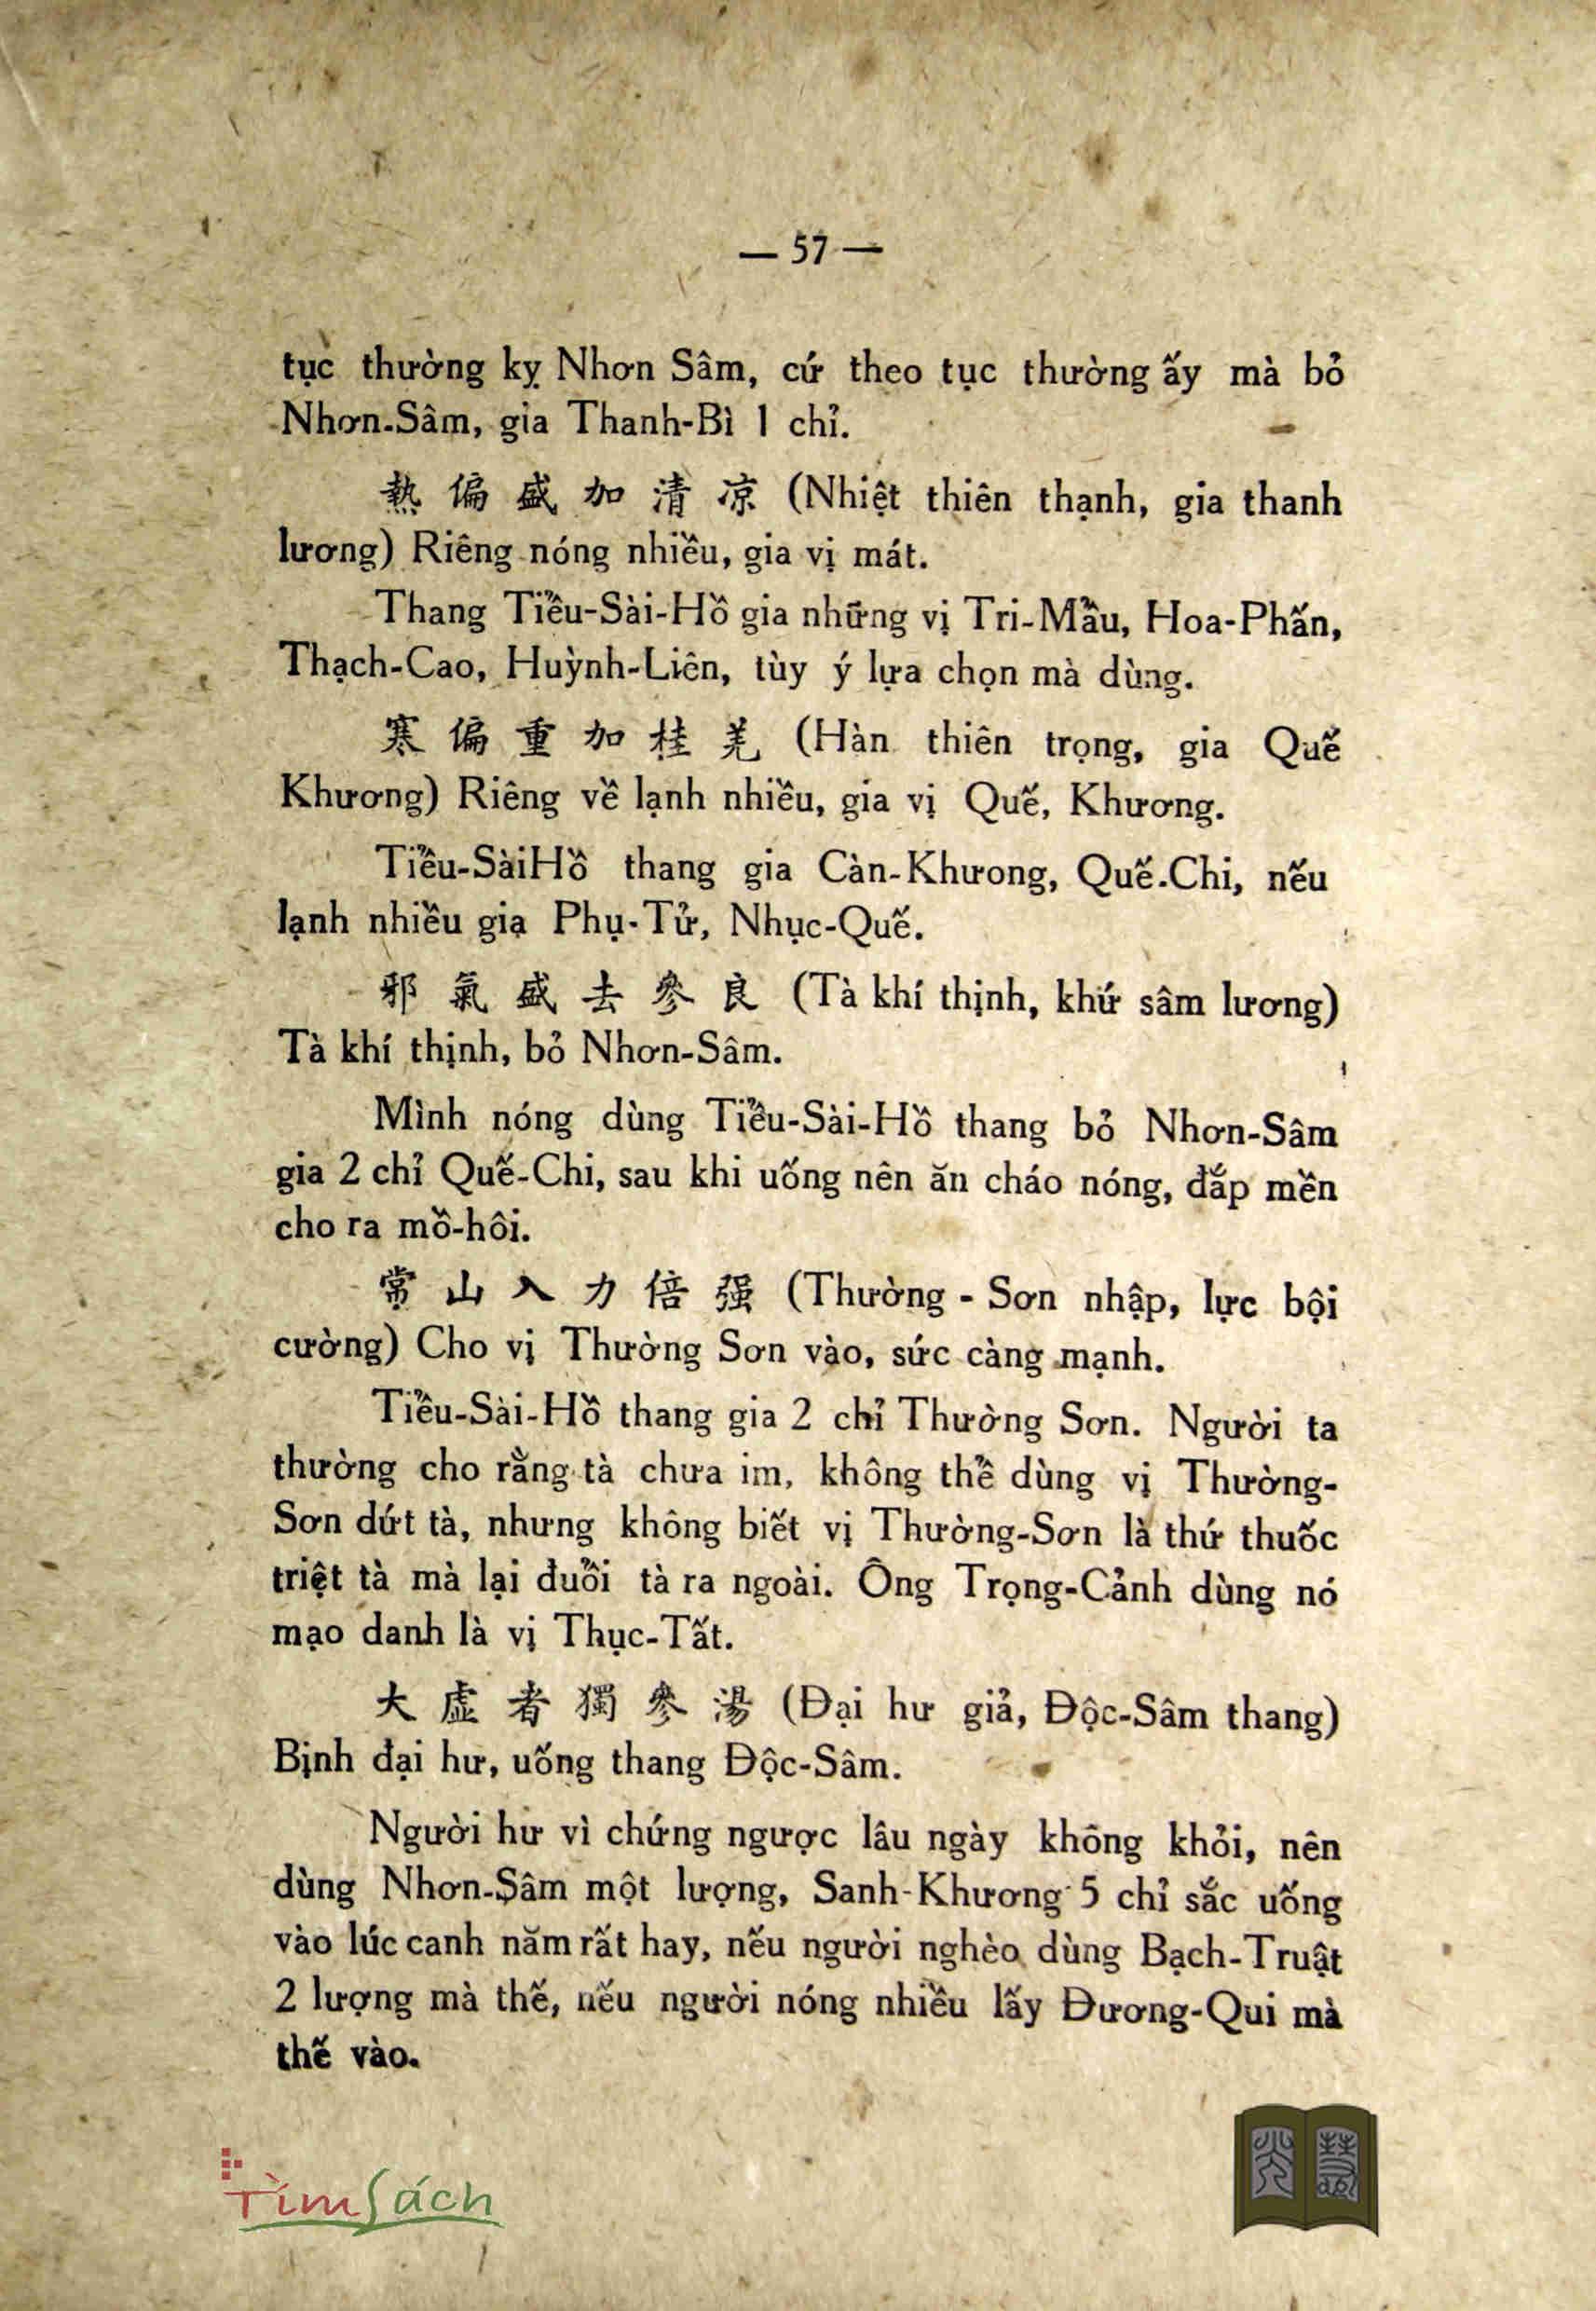 — 57 —
tục thường kỵ Nhơn Sâm, cứ theo tục thường ấy mà bỏ
Nhơn-Sâm, gia Thanh-Bì 1 chỉ.
熱 偏 盛 加 清 凉 (Nhiệt thiên thạnh, gia thanh
lương) Riêng nóng nhiều, gia vị mát.
Thang Tiểu-Sài-Hồ gia những vị Tri-Mẫu, Hoa-Phấn,
Thạch-Cao, Huỳnh-Liên, tùy ý lựa chọn mà dùng.
寒 偏 重 加 桂 羌 (Hàn thiên trọng, gia Quế
Khương) Riêng về lạnh nhiều, gia vị Quế, Khương.
Tiểu-SàiHồ thang gia Càn-Khương, Quế-Chi, nếu
lạnh nhiều gia Phụ-Tử, Nhục-Quế.
邪 氣 盛 去 參 良 (Tà khí thịnh, khứ sâm lương)
Tà khí thịnh, bỏ Nhơn-Sâm.
Mình nóng dùng Tiểu-Sài-Hồ thang bỏ Nhơn-Sâm
gia 2 chỉ Quế-Chi, sau khi uống nên ăn cháo nóng, đắp mền
cho ra mồ-hôi.
常 山 入 力 倍 强 (Thường - Sơn nhập, lực bội
cường) Cho vị Thường Sơn vào, sức càng mạnh.
Tiểu-Sài-Hồ thang gia 2 chỉ Thường Sơn. Người ta
thường cho rằng tà chưa im, không thể dùng vị Thường-
Sơn dứt tà, nhưng không biết vị Thường-Sơn là thứ thuốc
triệt tà mà lại đuổi tà ra ngoài. Ông Trọng-Cảnh dùng nó
mạo danh là vị Thục-Tất.
大 虛 者 獨 參 湯 (Đại hư giả, Độc-Sâm thang)
Bịnh đại hư, uống thang Độc-Sâm.
Người hư vì chứng ngược lâu ngày không khỏi, nên
dùng Nhơn-Sâm một lượng, Sanh-Khương 5 chỉ sắc uống
vào lúc canh năm rất hay, nếu người nghèo dùng Bạch-Truật
2 lượng mà thế, nếu người nóng nhiều lấy Đương-Qui mà
thế vào.
TìmSách